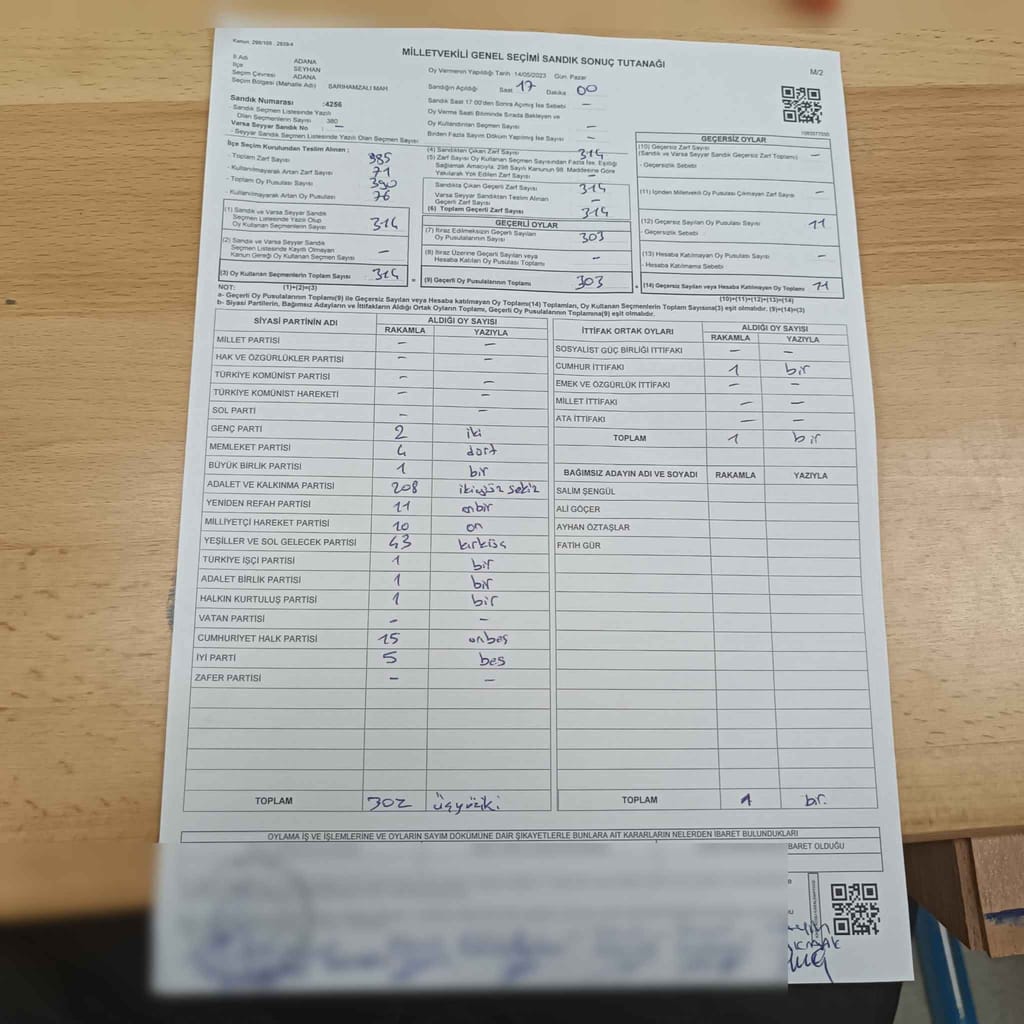 Kanun: 298/105 , 2839/4
MİLLETVEKİLİ GENEL SEÇİMİ SANDIK SONUÇ TUTANAĞI
M/2
İl Adı ADANA
İlçe SEYHAN
Seçim Çevresi ADANA
Seçim Bölgesi (Mahalle Adı) SARIHAMZALI MAH
Oy Vermenin Yapıldığı Tarih 14/05/2023 Gün: Pazar
Sandığın Açıldığı Saat 17 Dakika 00
Sandık Saat 17:00'den Sonra Açılmış İse Sebebi –
Oy Verme Saati Bitiminde Sırada Bekleyen ve
Oy Kullandırılan Seçmen Sayısı –
Birden Fazla Sayım Döküm Yapılmış İse Sayısı –
Sandık Numarası :4256
- Sandık Seçmen Listesinde Yazılı
Olan Seçmenlerin Sayısı 380
Varsa Seyyar Sandık No –
- Seyyar Sandık Seçmen Listesinde Yazılı Olan Seçmen Sayısı
İlçe Seçim Kurulundan Teslim Alınan :
- Toplam Zarf Sayısı 385
- Kullanılmayarak Artan Zarf Sayısı 71
- Toplam Oy Pusulası Sayısı 390
- Kullanılmayarak Artan Oy Pusulası 76
(1) Sandık ve Varsa Seyyar Sandık
Seçmen Listesinde Yazılı Olup
Oy Kullanan Seçmenlerin Sayısı 314
(2) Sandık ve Varsa Seyyar Sandık
Seçmen Listesinde Kayıtlı Olmayan
Kanun Gereği Oy Kullanan Seçmen Sayısı –
(3) Oy Kullanan Seçmenlerin Toplam Sayısı 314
(4) Sandıktan Çıkan Zarf Sayısı 314
(5) Zarf Sayısı Oy Kullanan Seçmen Sayısından Fazla İse, Eşitliği
Sağlamak Amacıyla, 298 Sayılı Kanunun 98. Maddesine Göre
Yakılarak Yok Edilen Zarf Sayısı –
Sandıkta Çıkan Geçerli Zarf Sayısı 314
Varsa Seyyar Sandıktan Teslim Alınan
Geçerli Zarf Sayısı –
(6) Toplam Geçerli Zarf Sayısı 314
GEÇERLİ OYLAR
(7) İtiraz Edilmeksizin Geçerli Sayılan
Oy Pusulalarının Sayısı 303
(8) İtiraz Üzerine Geçerli Sayılan veya
Hesaba Katılan Oy Pusulası Toplamı –
= (9) Geçerli Oy Pusulalarının Toplamı 303
GEÇERSİZ OYLAR
(10) Geçersiz Zarf Sayısı
(Sandık ve Varsa Seyyar Sandık Geçersiz Zarf Toplamı) –
- Geçersizlik Sebebi
(11) İçinden Milletvekili Oy Pusulası Çıkmayan Zarf Sayısı –
(12) Geçersiz Sayılan Oy Pusulası Sayısı 11
- Geçersizlik Sebebi
(13) Hesaba Katılmayan Oy Pusulası Sayısı –
- Hesaba Katılmama Sebebi
+ (14) Geçersiz Sayılan veya Hesaba Katılmayan Oy Toplamı 11
NOT: (1)+(2)=(3)
(10)+(11)+(12)+(13)=(14)
a- Geçerli Oy Pusulalarının Toplamı(9) ile Geçersiz Sayılan veya Hesaba katılmayan Oy Toplamı(14) Toplamları, Oy Kullanan Seçmenlerin Toplam Sayısına(3) eşit olmalıdır. (9)+(14)=(3)
b- Siyasi Partilerin, Bağımsız Adayların ve İttifakların Aldığı Ortak Oyların Toplamı, Geçerli Oy Pusulalarının Toplamına(9) eşit olmalıdır.
SİYASİ PARTİNİN ADI ALDIĞI OY SAYISI
RAKAMLA YAZIYLA
MİLLET PARTİSİ – –
HAK VE ÖZGÜRLÜKLER PARTİSİ – –
TÜRKİYE KOMÜNİST PARTİSİ – –
TÜRKİYE KOMÜNİST HAREKETİ – –
SOL PARTİ – –
GENÇ PARTİ 2 iki
MEMLEKET PARTİSİ 4 dört
BÜYÜK BİRLİK PARTİSİ 1 bir
ADALET VE KALKINMA PARTİSİ 208 ikiyüz sekiz
YENİDEN REFAH PARTİSİ 11 onbir
MİLLİYETÇİ HAREKET PARTİSİ 10 on
YEŞİLLER VE SOL GELECEK PARTİSİ 43 kırküç
TÜRKİYE İŞÇİ PARTİSİ 1 bir
ADALET BİRLİK PARTİSİ 1 bir
HALKIN KURTULUŞ PARTİSİ 1 bir
VATAN PARTİSİ – –
CUMHURİYET HALK PARTİSİ 15 onbeş
İYİ PARTİ 5 beş
ZAFER PARTİSİ – –
TOPLAM 302 üçyüziki
İTTİFAK ORTAK OYLARI ALDIĞI OY SAYISI
RAKAMLA YAZIYLA
SOSYALİST GÜÇ BİRLİĞİ İTTİFAKI – –
CUMHUR İTTİFAKI 1 bir
EMEK VE ÖZGÜRLÜK İTTİFAKI – –
MİLLET İTTİFAKI – –
ATA İTTİFAKI – –
TOPLAM 1 bir
BAĞIMSIZ ADAYIN ADI VE SOYADI RAKAMLA YAZIYLA
SALİM ŞENGÜL
ALİ GÖÇER
AYHAN ÖZTAŞLAR
FATİH GÜR
TOPLAM 1 bir.
OYLAMA İŞ VE İŞLEMLERİNE VE OYLARIN SAYIM DÖKÜMÜNE DAİR ŞİKAYETLERLE BUNLARA AİT KARARLARIN NELERDEN İBARET BULUNDUKLARI
BARET OLDUĞU